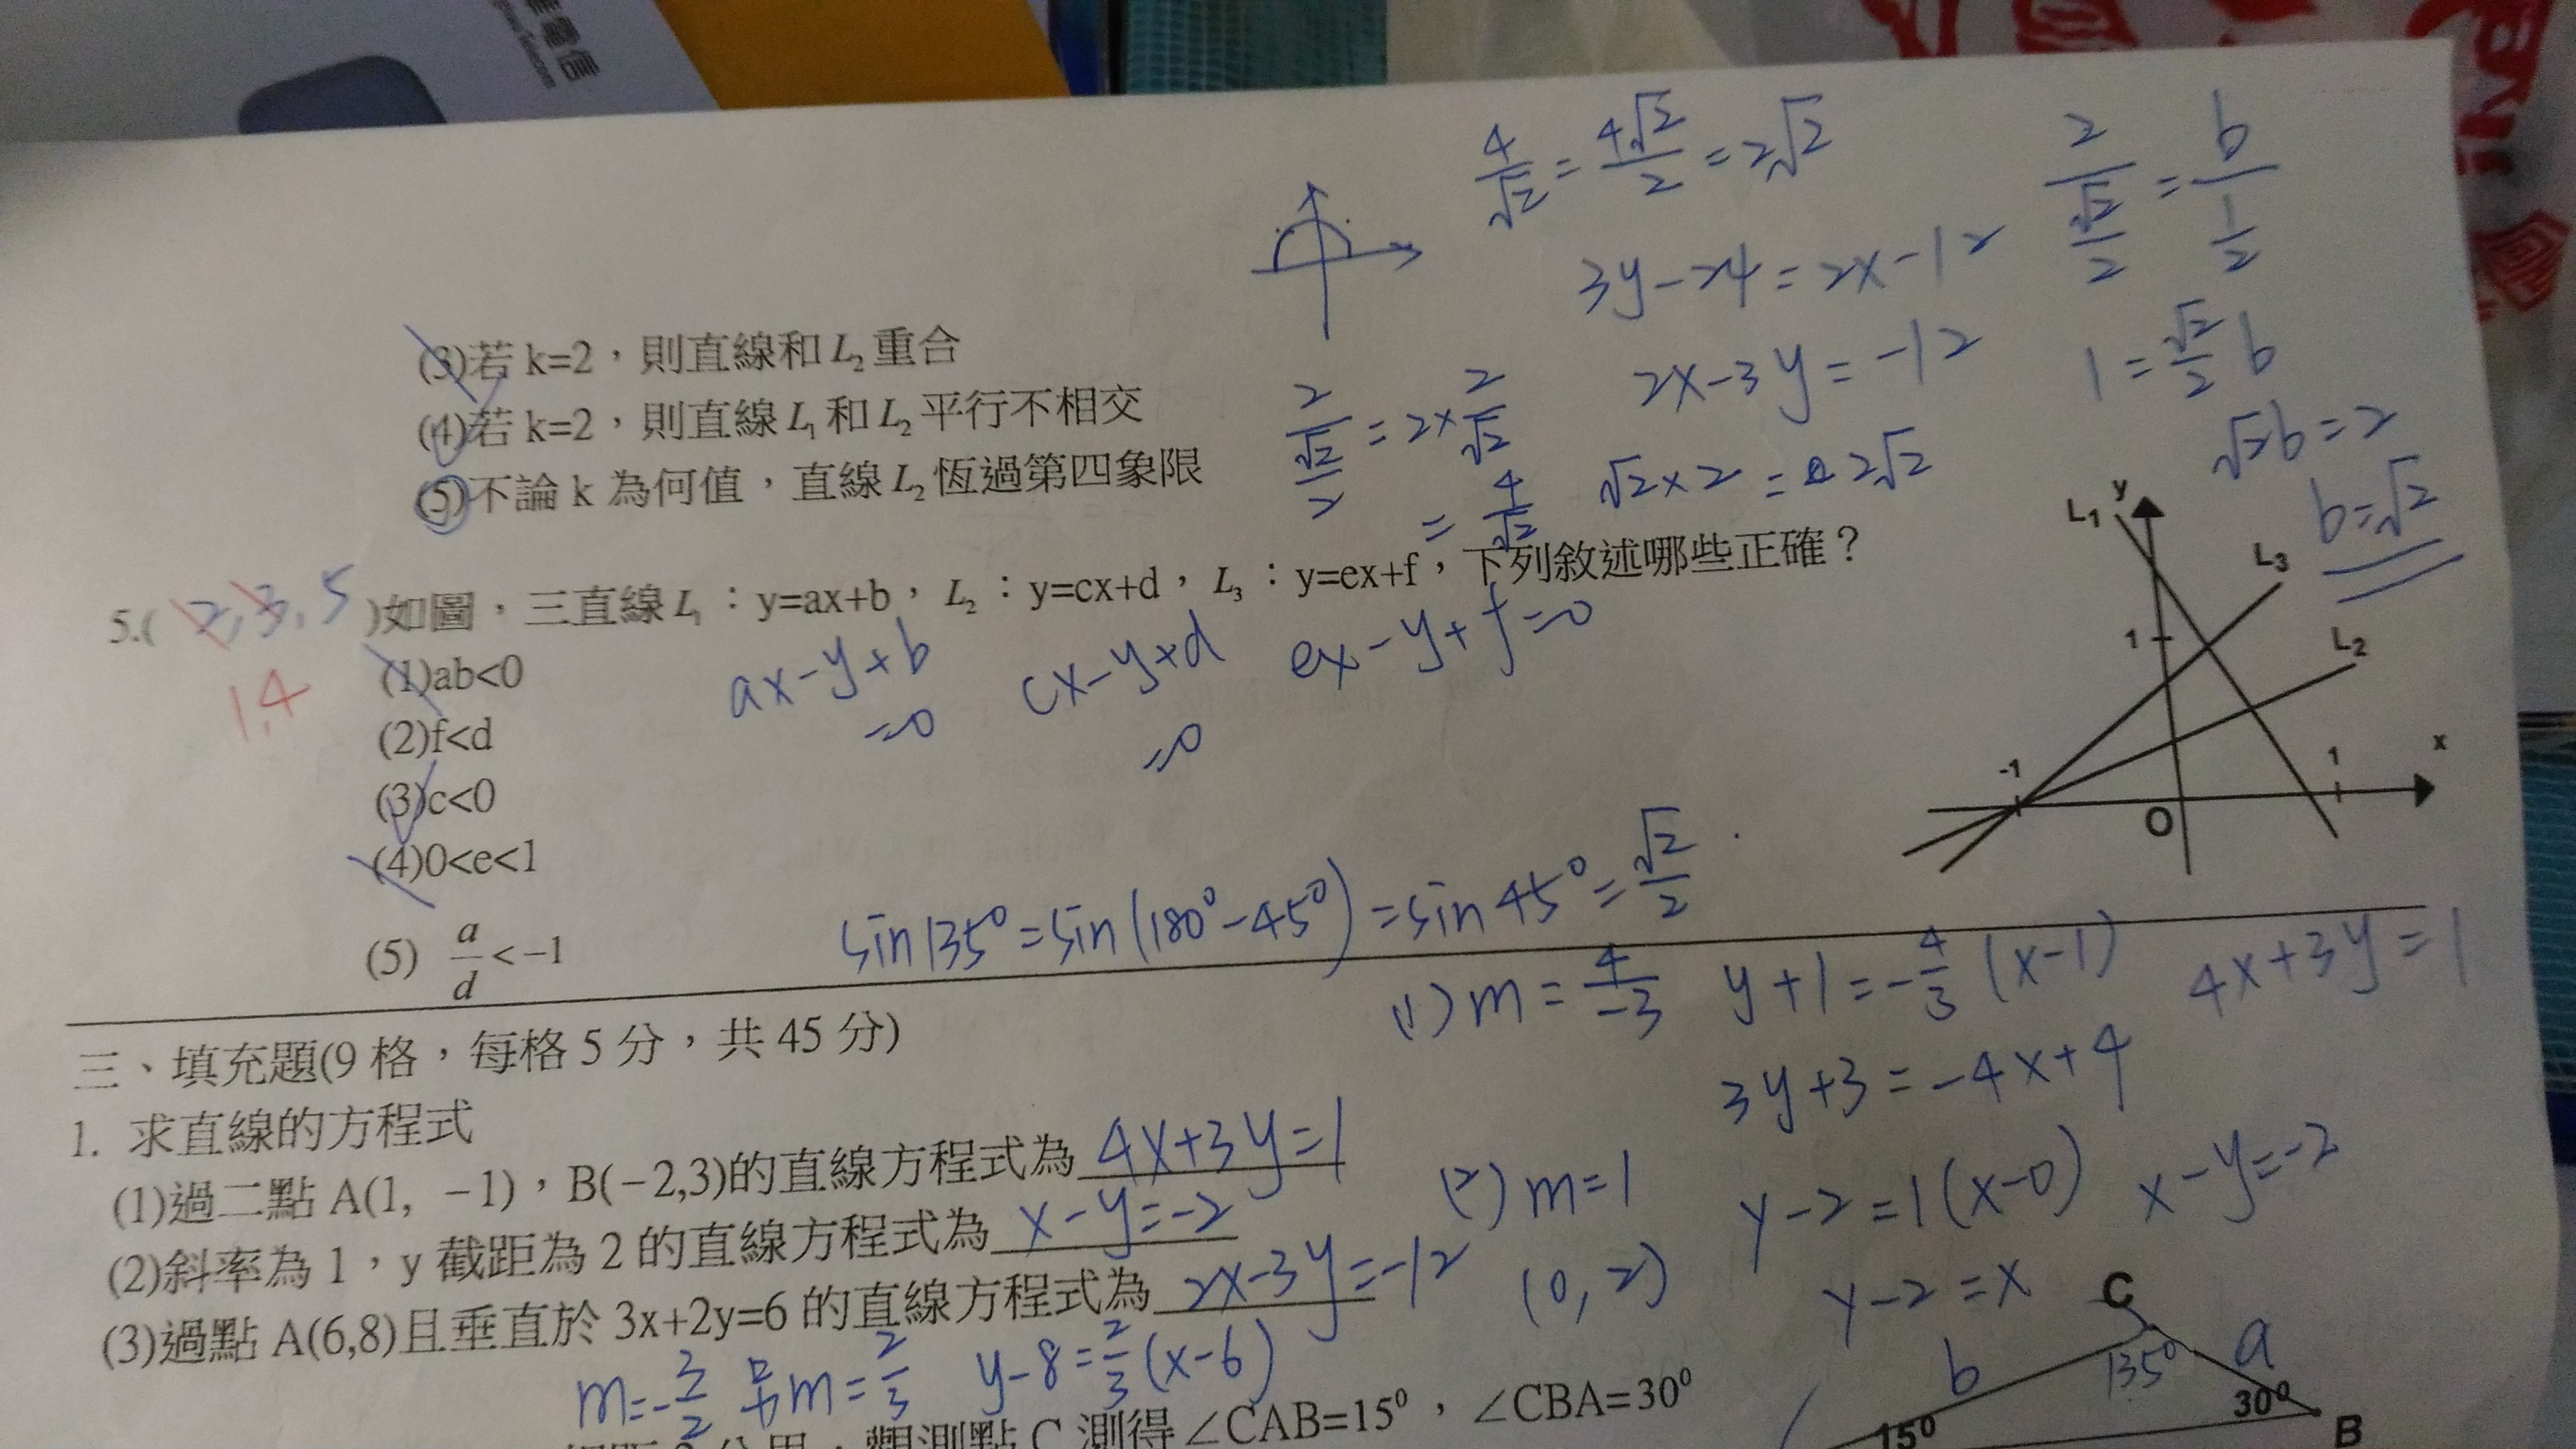 華電信
(3)若 k=2，則直線和 L₂ 重合
(4)若 k=2，則直線 L₁ 和 L₂ 平行不相交
(5)不論 k 為何值，直線 L₂ 恆過第四象限
4/√2 = 4√2/2 = 2√2
3y-24=2x-12
2x-3y=-12
√2×2=2√2
2/(√2/2) = b/(1/2)
1=√2/2 b
√2b=2
b=√2
2/(√2/2) = 2×2/√2
= 4/√2
5.( 2,3,5 )如圖，三直線 L₁：y=ax+b，L₂：y=cx+d，L₃：y=ex+f，下列敘述哪些正確？
1,4
ax-y+b=0
cx-y+d=0
ex-y+f=0
(1)ab<0
(2)f<d
(3)c<0
(4)0<e<1
(5) a/d<-1
L₁ y
L₃
1
L₂
-1
1
x
O
sin135°=sin(180°-45°)=sin45°=√2/2
三、填充題(9 格，每格 5 分，共 45 分)
1. 求直線的方程式
(1)過二點 A(1, -1)，B(-2,3)的直線方程式為 4x+3y=1
(2)斜率為 1，y 截距為 2 的直線方程式為 x-y=-2
(3)過點 A(6,8)且垂直於 3x+2y=6 的直線方程式為 2x-3y=-12
(1) m=4/-3 y+1=-4/3(x-1) 4x+3y=1
3y+3=-4x+4
(2) m=1 y-2=1(x-0) x-y=-2
(0,2) y-2=x
m=-3/2 m=2/3 y-8=2/3(x-6)
觀測點 C 測得 ∠CAB=15°，∠CBA=30°
C
b
135°
a
15°
30°
B